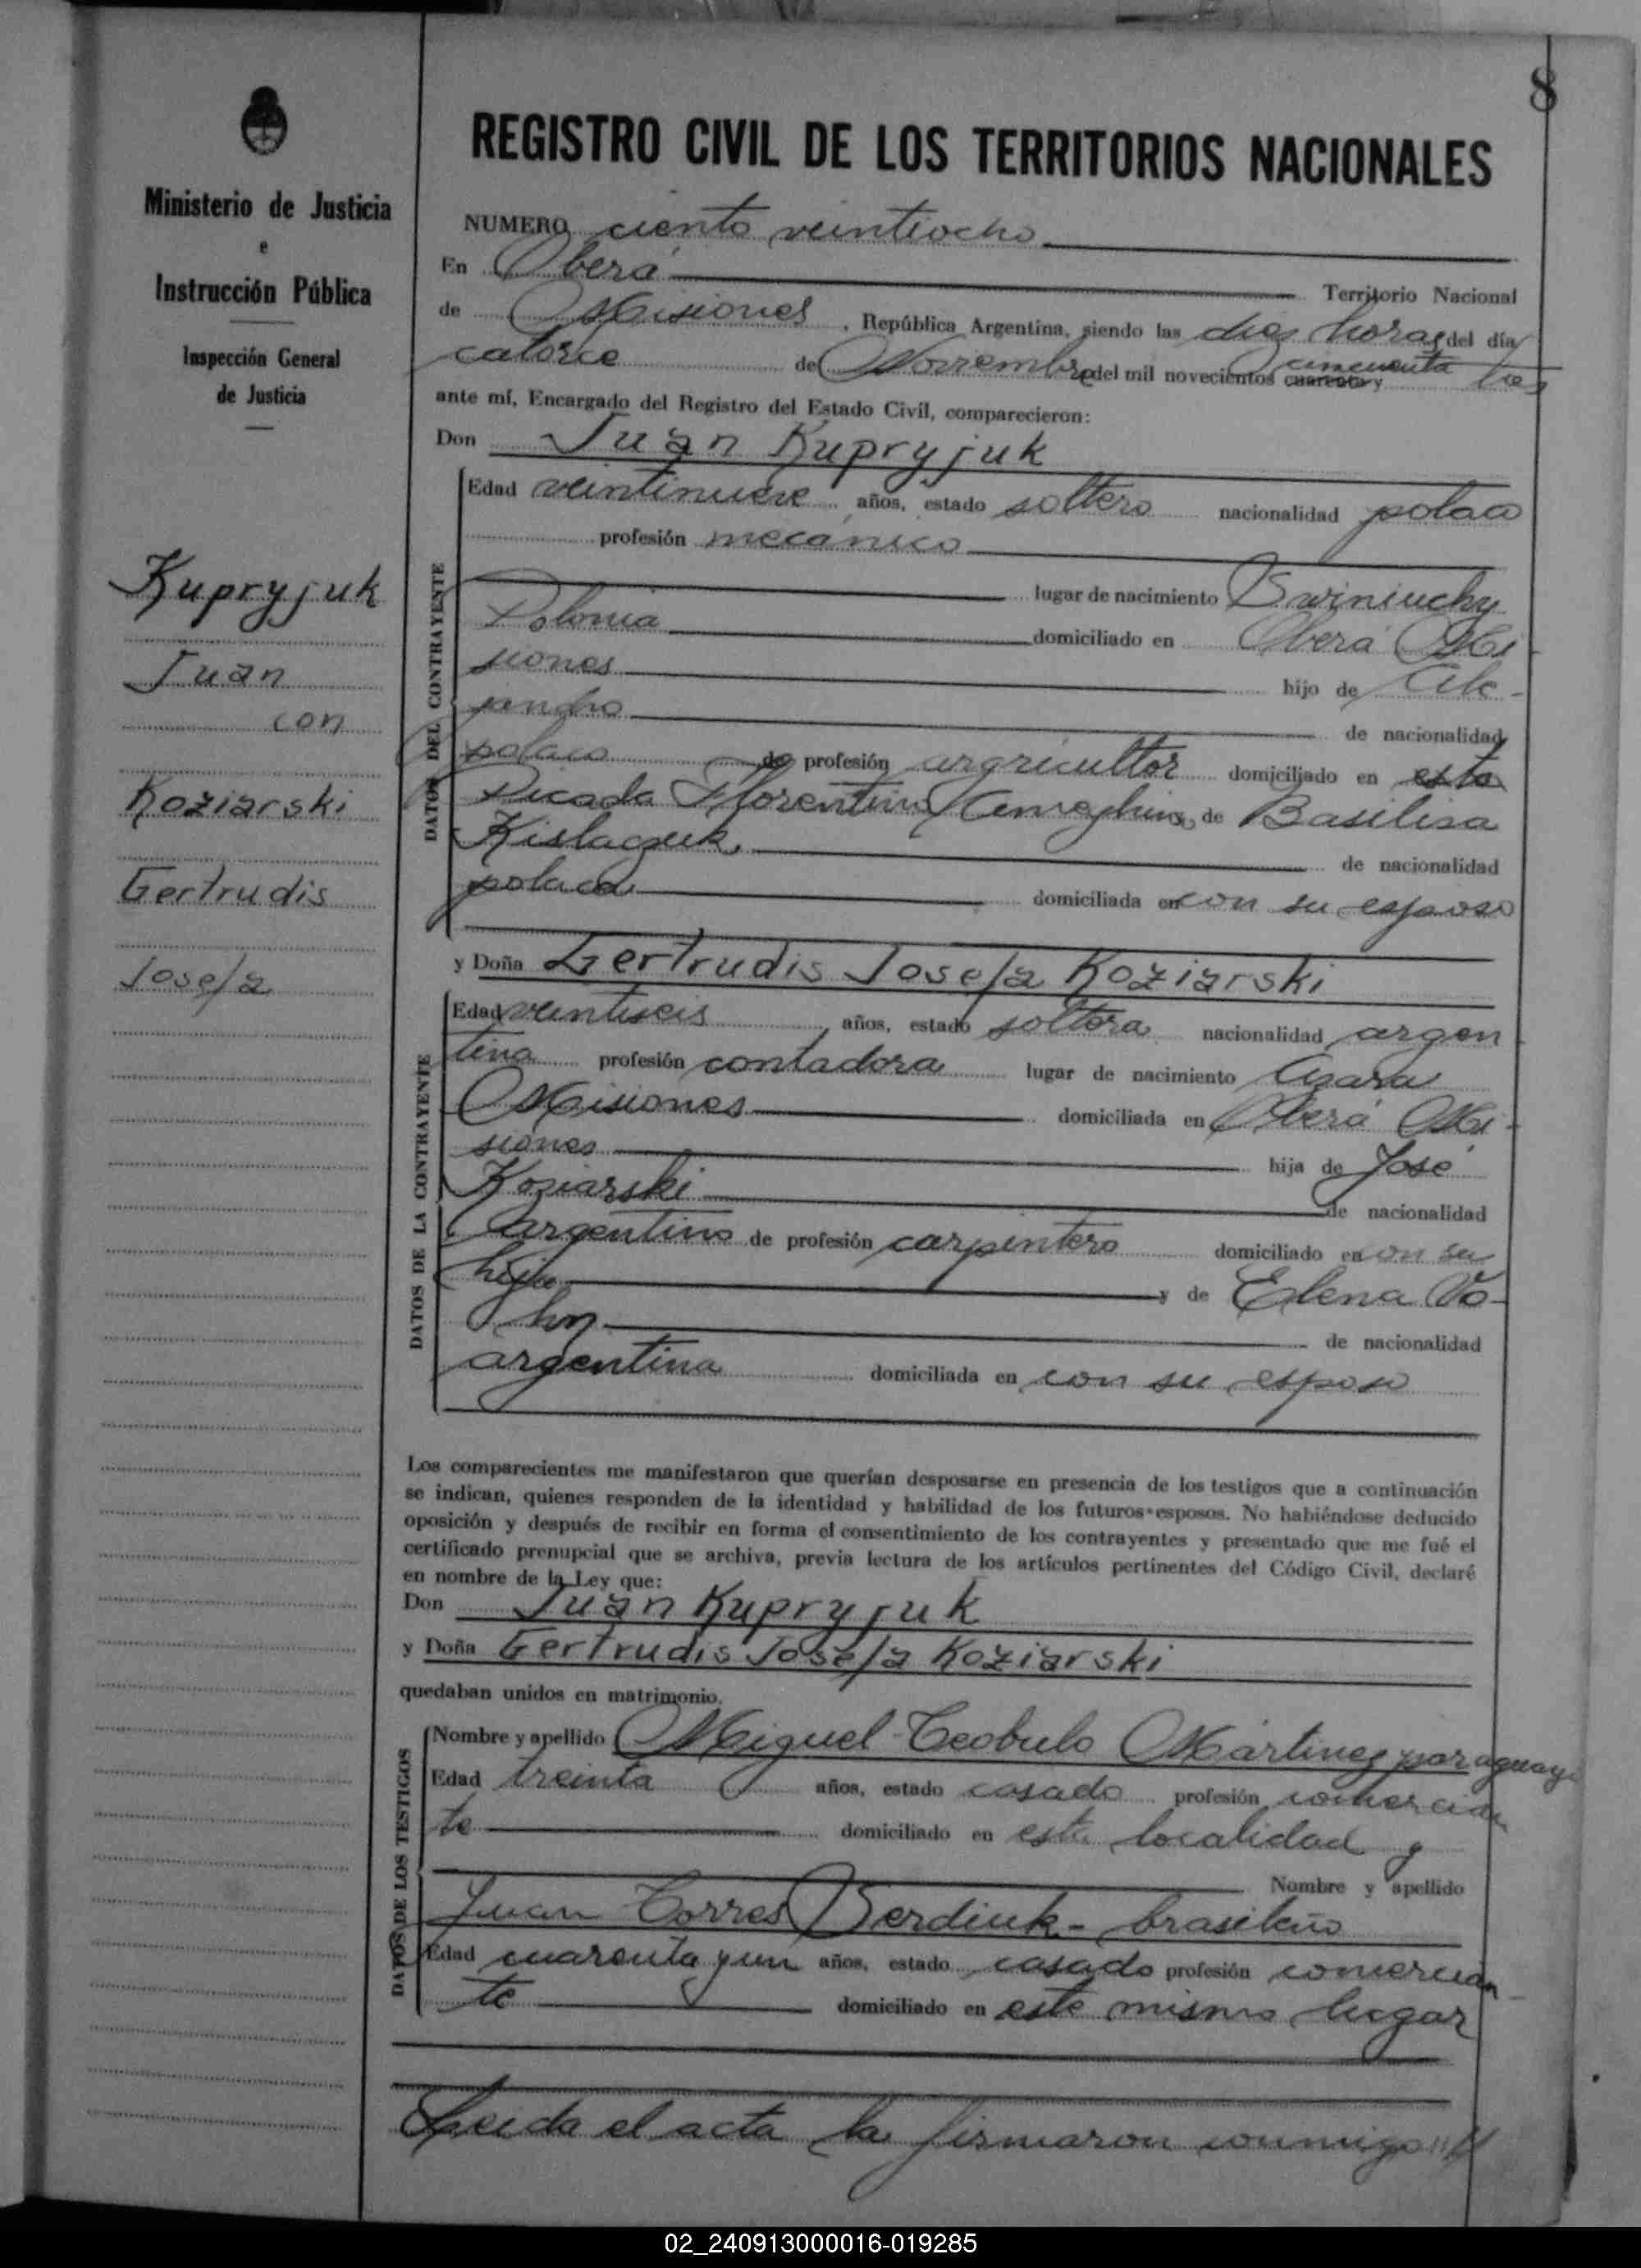 8
Ministerio de Justicia
e
Instrucción Pública
Inspección General
de Justicia
Kupryjuk
Juan
con
Koziarski
Gertrudis
Josefa
REGISTRO CIVIL DE LOS TERRITORIOS NACIONALES
NUMERO ciento veintiocho
En Oberá Territorio Nacional
de Misiones, República Argentina, siendo las diez horas del día
catorce de Noviembre del mil novecientos cuarenta y cincuenta tres
ante mí, Encargado del Registro del Estado Civil, comparecieron:
Don Juan Kupryjuk
DATOS DEL CONTRAYENTE
Edad veintinueve años, estado soltero nacionalidad polaca
profesión mecánico
lugar de nacimiento Swiniuchy
Polonia domiciliado en Oberá Mi-
siones hijo de Ale-
jandro de nacionalidad
polaco de profesión argricultor domiciliado en esta
Picada Florentino Ameghino y de Basilisa
Kislaczuk de nacionalidad
polaca domiciliada en con su esposo
y Doña Gertrudis Josefa Koziarski
DATOS DE LA CONTRAYENTE
Edad veintiseis años, estado soltera nacionalidad argen
tina profesión contadora lugar de nacimiento Azara
Misiones domiciliada en Oberá Mi-
siones hija de José
Koziarski de nacionalidad
argentino de profesión carpintero domiciliado en con su
hija y de Elena Vo-
hn de nacionalidad
argentina domiciliada en con su esposo
Los comparecientes me manifestaron que querían desposarse en presencia de los testigos que a continuación
se indican, quienes responden de la identidad y habilidad de los futuros esposos. No habiéndose deducido
oposición y después de recibir en forma el consentimiento de los contrayentes y presentado que me fué el
certificado prenupcial que se archiva, previa lectura de los artículos pertinentes del Código Civil, declaré
en nombre de la Ley que:
Don Juan Kupryjuk
y Doña Gertrudis Josefa Koziarski
quedaban unidos en matrimonio.
DATOS DE LOS TESTIGOS
Nombre y apellido Miguel Teobulo Martinez paraguayo
Edad treinta años, estado casado profesión comercian
te domiciliado en esta localidad y
Nombre y apellido
Juan Torres Berdiuk - brasileño
Edad cuarenta y un años, estado casado profesión comercian-
te domiciliado en este mismo lugar
Leida el acta la firmaron conmigo
02_240913000016-019285